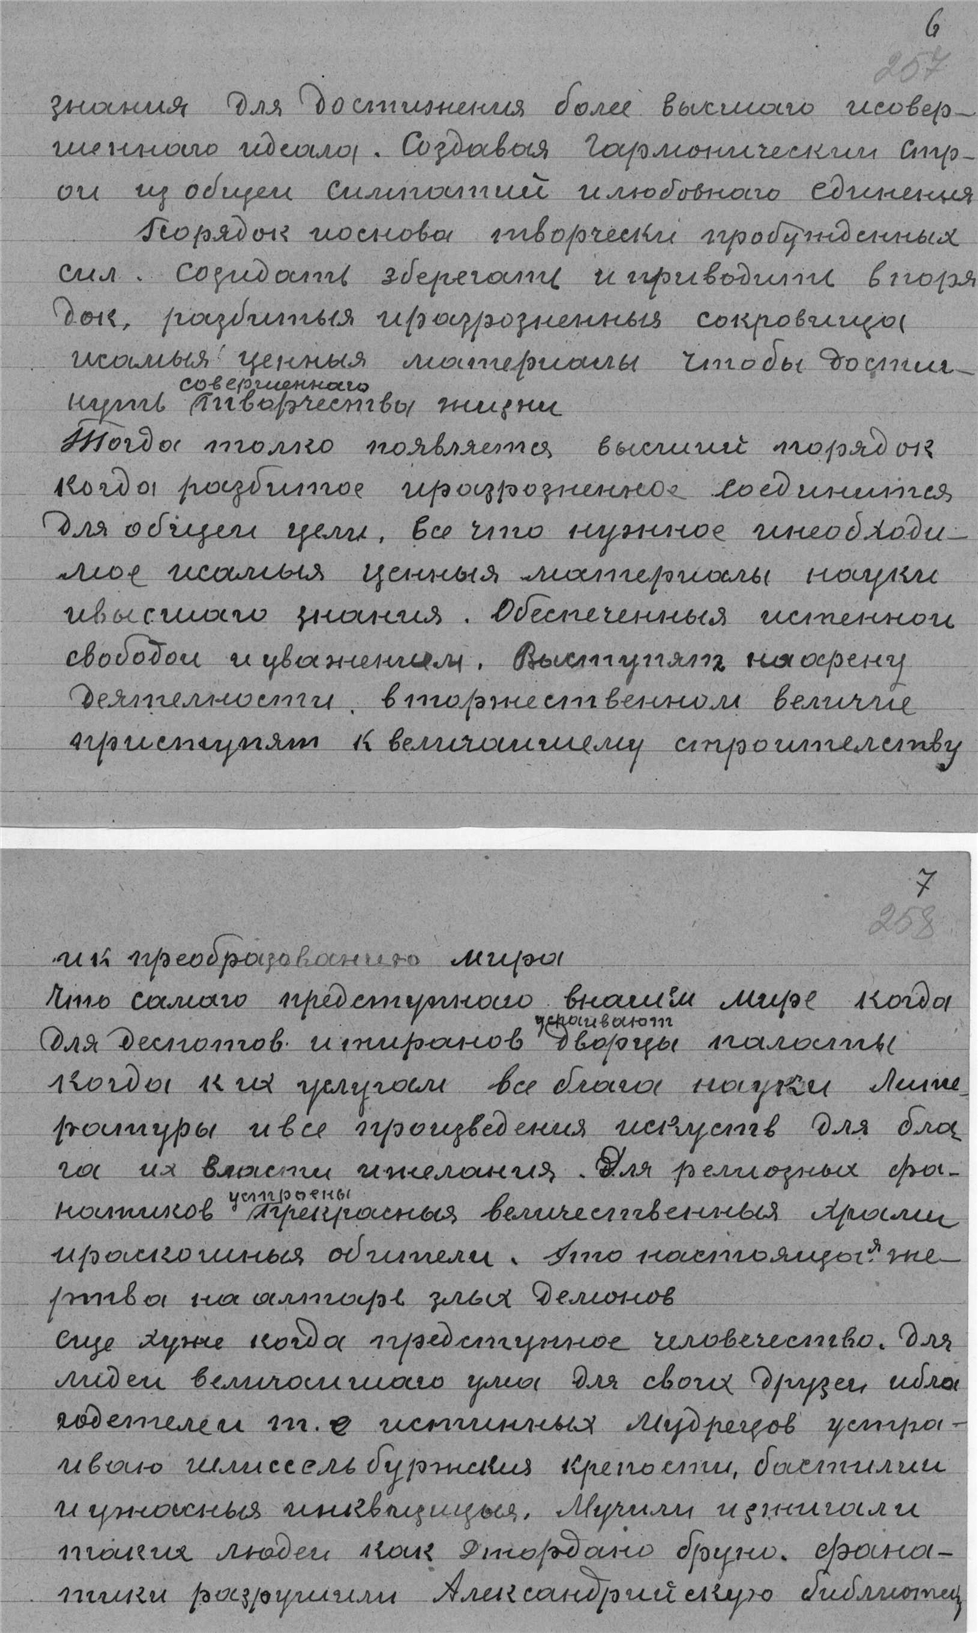 6
257
знания для достижения более высшаго исовер-
шеннаго идеала. Создавая гармонический стр-
ои из общеи симпатий илюбовнаго единения
Порядок иоснова творчески пробужденных
сил. созидать зберегать и приводить впоря
док, разбитыя иразрозненныя сокровища
исамыя ценныя материалы чтобы достиг-
совершеннаго
нуть творчества жизни
Тогда толко появляется высший порядок
когда разбитое иразрозненное соединится
для общеи цели, все что нужное инеобходи-
мое исамыя ценныя материалы науки
ивысшаго знания. Обеспеченныя истенной
свободои и уважением. Выступят на арену
деятелности. вторжественном величие
приступят к величаишему строителству
7
258
ик преобразованию мира
Что самаго предступнаго внашем мире когда
устраивают
для деспотов и тиранов дворцы палаты
когда к их услугам все блага науки лите-
ратуры ивсе произведения искуств для бла-
га их власти ижелания. Для релиозных фа-
устроены
натиков прекрасныя величественныя храмы
ираскошныя обители. Это настоящая же-
ртва на алтаре злых демонов
еще хуже когда предступное человечество. для
людеи величаишаго ума для своих друзеи ибла
годетелеи т. е истинных мудрецов устра-
иваю шлиссельбуржския крепости, бастилии
и ужасныя инквизиция. Мучили изжигали
таких людеи как Джордано бруно. фана-
тики разрушили Александрийскую библиотец